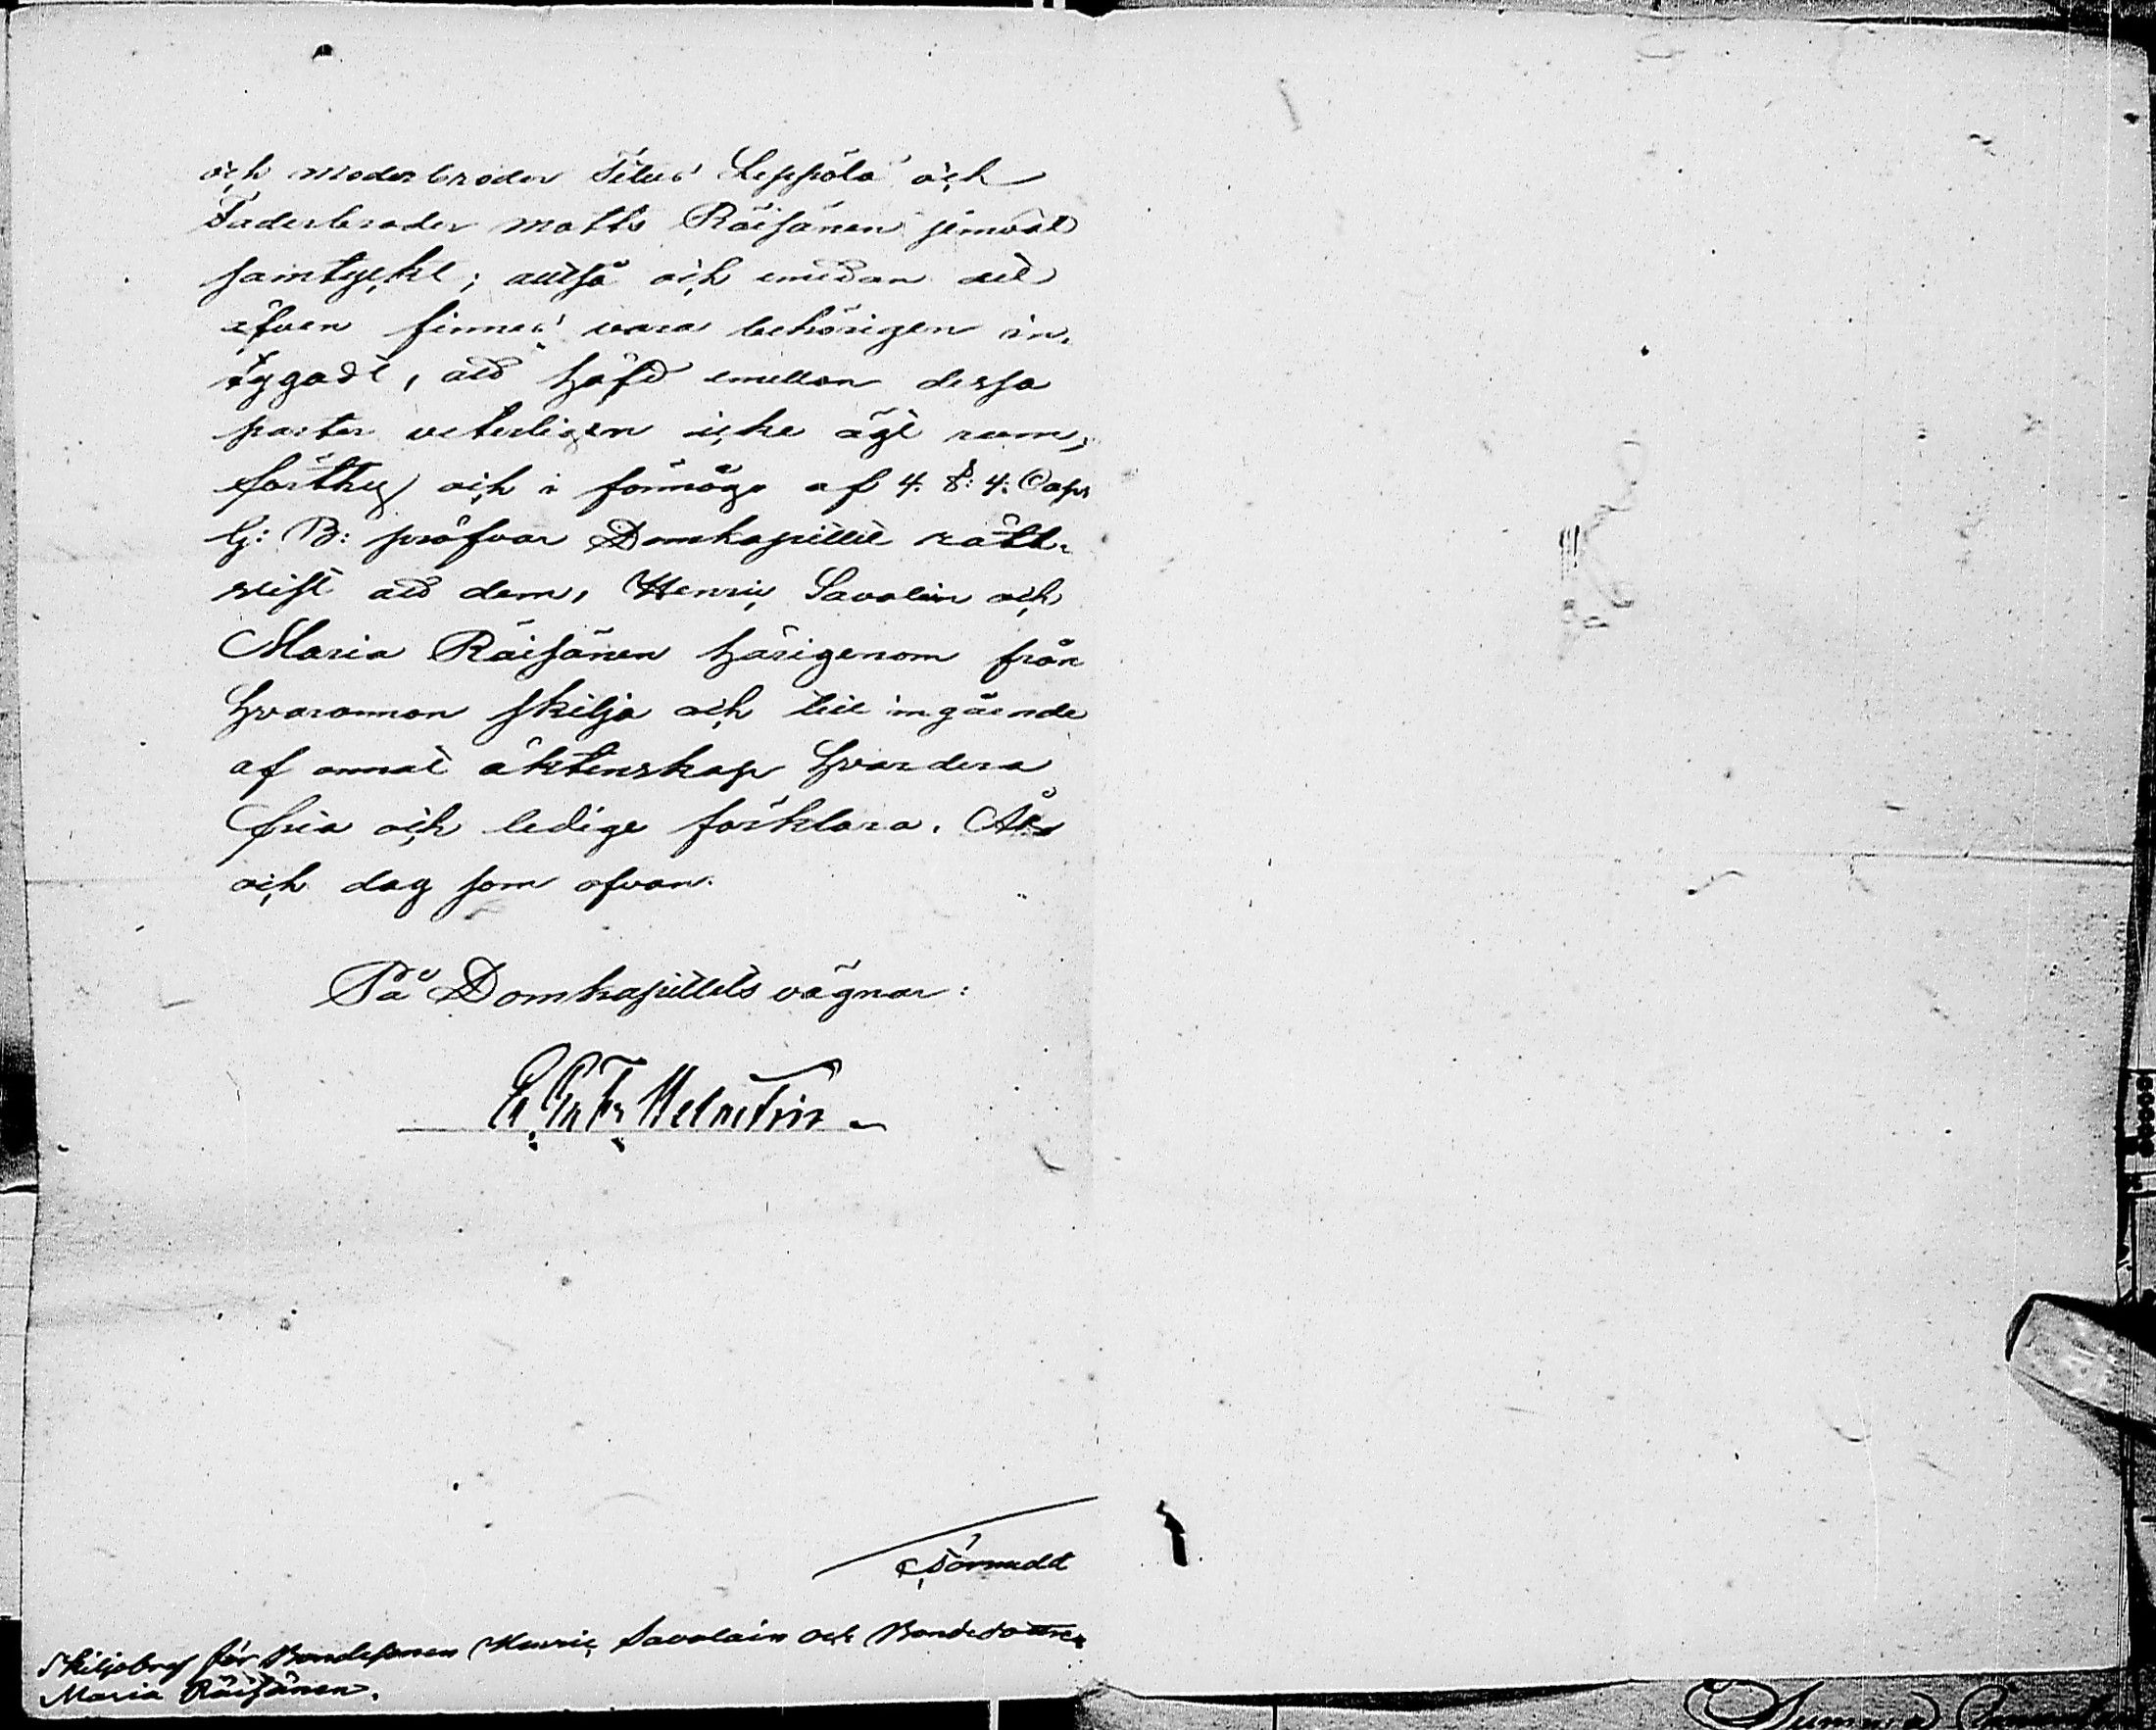 och moderbroder Petus Leppälä och
Faderbroder Matts Räisänen jemväl
samtyckt; alltså och emedan det
äfven finnes vara behörigen in-
tygadt, att häfd emellan dessa
parter veterligen icke ägt rum,
förthy och i förmågo af 4. §: 4: Cap.
G: B: pröfvar Domkapitlet rätt-
vist att dem, Henric Savolain och
Maria Räisänen härigenom från
hvarannan skilja och till ingående
af annat äktenskap hvardera
fria och ledige förklara. År
och dag som ofvan.
På Domkapitlets vägnar:
Törnudd
Skiljobref för Bondesonen Henric Savolain och Bondedottren
Maria Räisänen.